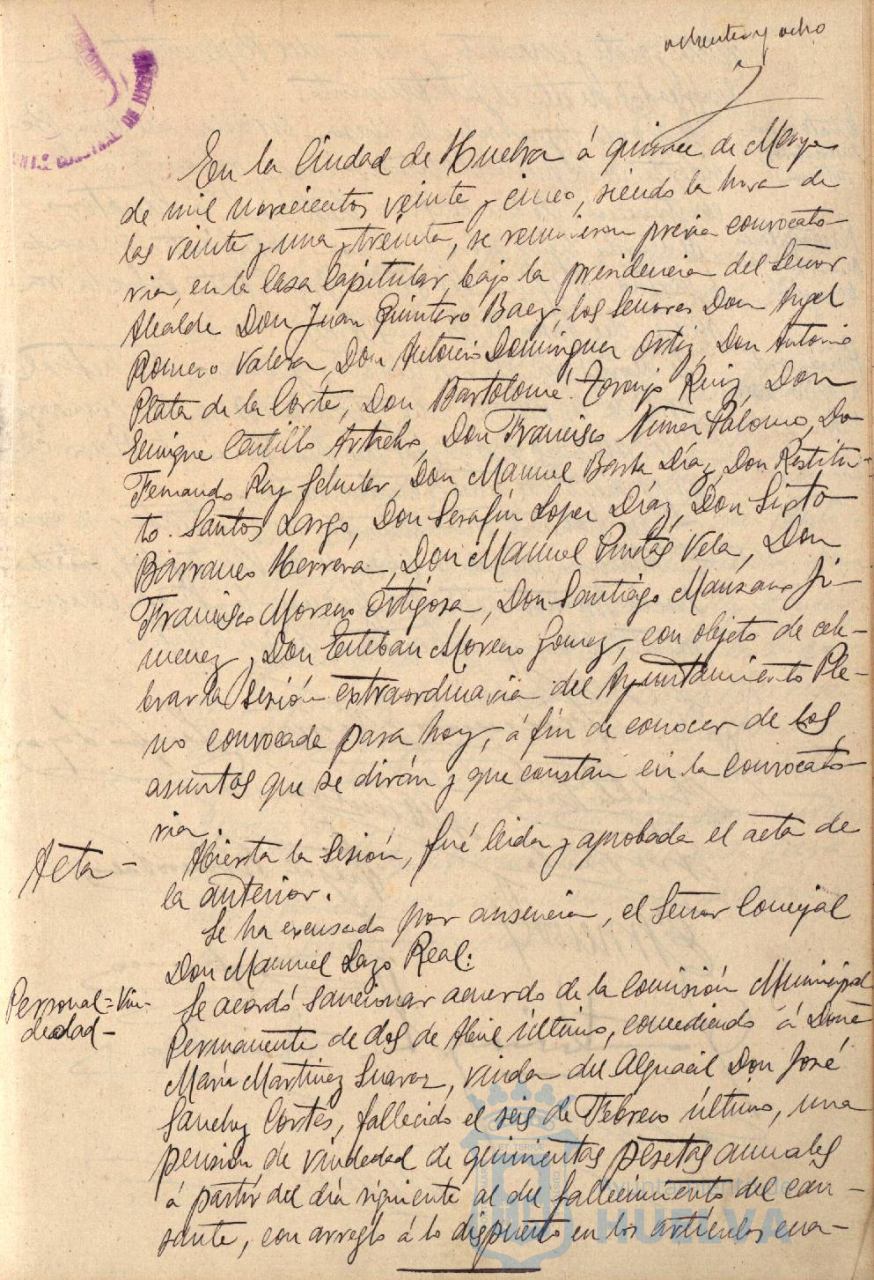 ochenta y ocho
En la Ciudad de Huelva á quince de Mayo
de mil novecientos veinte y cinco, siendo la hora de
las veinte y una y treinta, se reunieron previa convocato-
ria, en la Casa Capitular, bajo la presidencia del Señor
Alcalde Don Juan Quintero Baez, los Señores Don Angel
Romero Valera, Don Antonio Dominguez Ortiz, Don Antonio
Plata de la Corte, Don Bartolomé Toronjo Ruiz, Don
Enrique Castillo Don Francisco Nuñez Palomo, Do
Fernando Rey Don Manuel Díaz, Don Restitu-
to Santos Largo, Don Serafín Lopez Díaz, Don Sixto
Barranco Herrera, Don Manuel Vela, Don
Francisco Moreno Ortigosa, Don Santiago Manzano Ji-
menez, Don Esteban Moreno Gomez, con objeto de cele-
brar la Sesión extraordinaria del Ayuntamiento Ple-
no convocada para hoy, á fin de conocer de los
asuntos que se dirán y que constan en la convocato-
ria.
Acta-
Abierta la Sesión, fué leida y aprobada el acta de
la anterior.
Se ha excusado por ausencia, el Señor Concejal
Don Manuel Lazo Real.
Personal=Viu-
dedad-
Se acordó sancionar acuerdo de la Comisión Municipal
Permanente de dos de Abril último, concediendo á Doña
María Martinez Suarez, viuda del Alguacil Don José
Sanchez Cortés, fallecido el seis de Febrero último, una
pensión de viudedad de quinientas pesetas anuales
á partir del día siguiente al del fallecimiento del cau-
sante, con arreglo á lo dispuesto en los artículos cua-
HUELVA